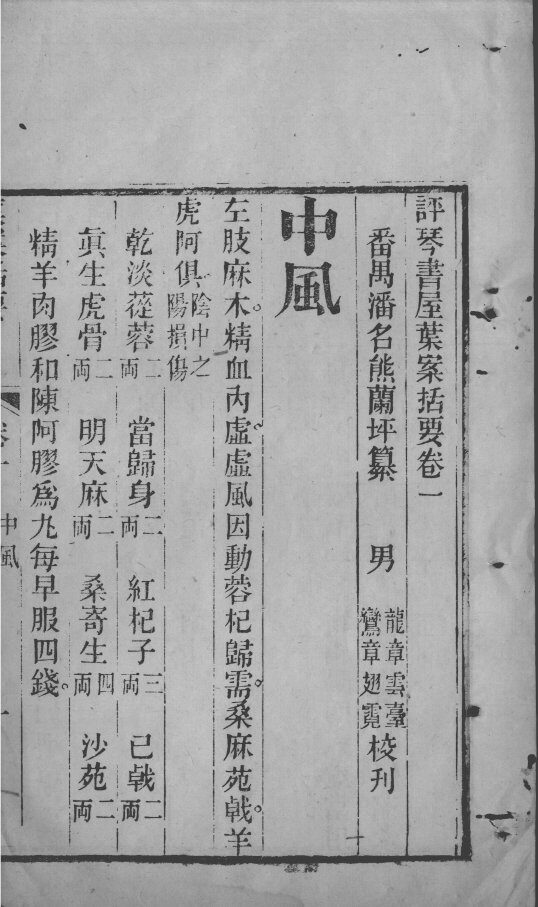 評琴書屋葉案括要卷一
番禺潘名熊蘭坪纂 男 龍章雲臺 鸞章翅霓 校刊
中風
左肢麻木。精血內虛。虛風因動蓉杞歸需。桑麻苑戟。羊
虎阿俱陰中之陽損傷
乾淡蓯蓉二両 當歸身二両 紅杞子三両 巳戟二両
眞生虎骨二両 明天麻二両 桑寄生四両 沙苑二両
精羊肉膠和陳阿膠爲丸每早服四錢。
卷一 中風 一